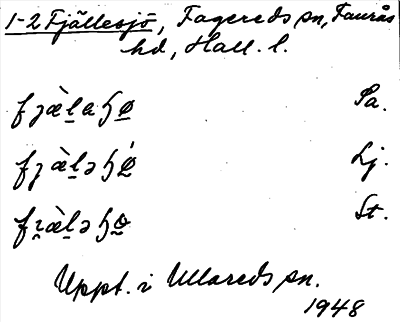 1-2 Fjällesjö, Fagereds sn, Faurås
hd, Hall. l.
fjæ̀l̲aɧø̲ Pa.
fjæ̀l̲əɧǿ̲ Lj.
fj̲æ̀l̲əɧø̲ St.
Uppt. i Ullareds sn.
1948